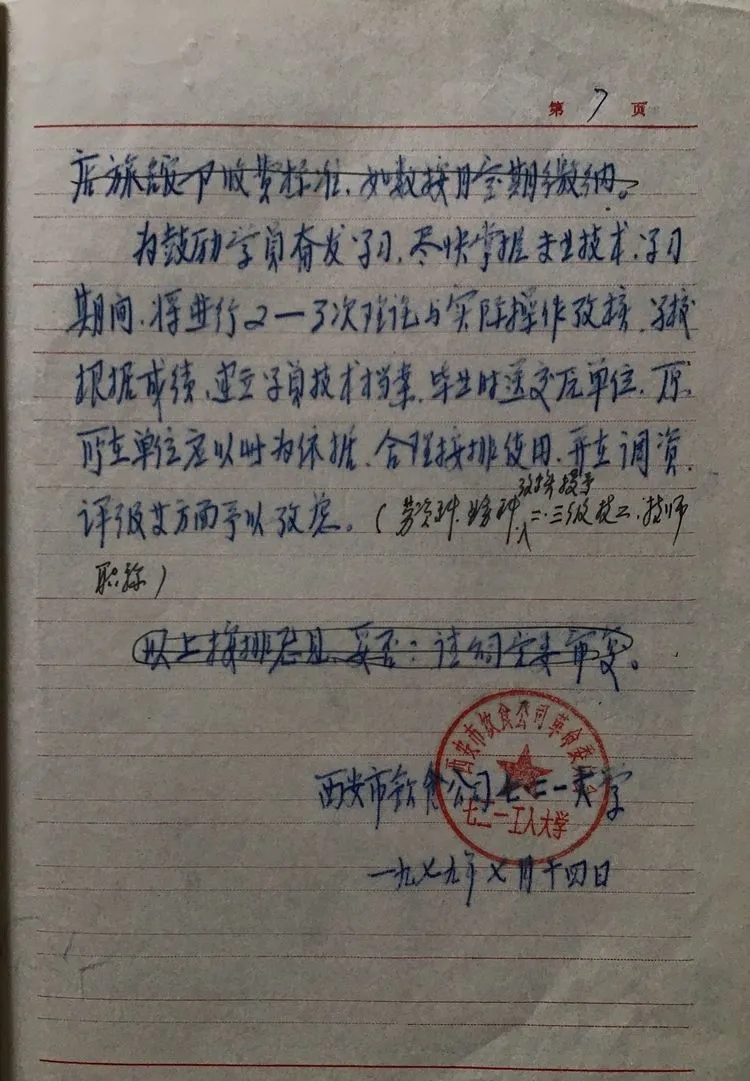 第 7 页
店旅客最下收费标准，如数按月定期缴纳。
为鼓励学员奋发学习，尽快掌握专业技术，学习
期间，将进行2一3次理论与实际操作考核，学校
根据成绩，建立学员技术档案，毕业时送交原单位，原
所在单位应以此为依据，合理按排使用，并在调资，
评级等方面予以考虑。（劳资科、业务科
考核授予
二、三级技工、技师
职称）
以上按排意见，妥否？请公司党委审定。
西安市饮食公司革命委员会
七二一工人大学
西安市饮食公司七二一大学
一九七九年七月十四日